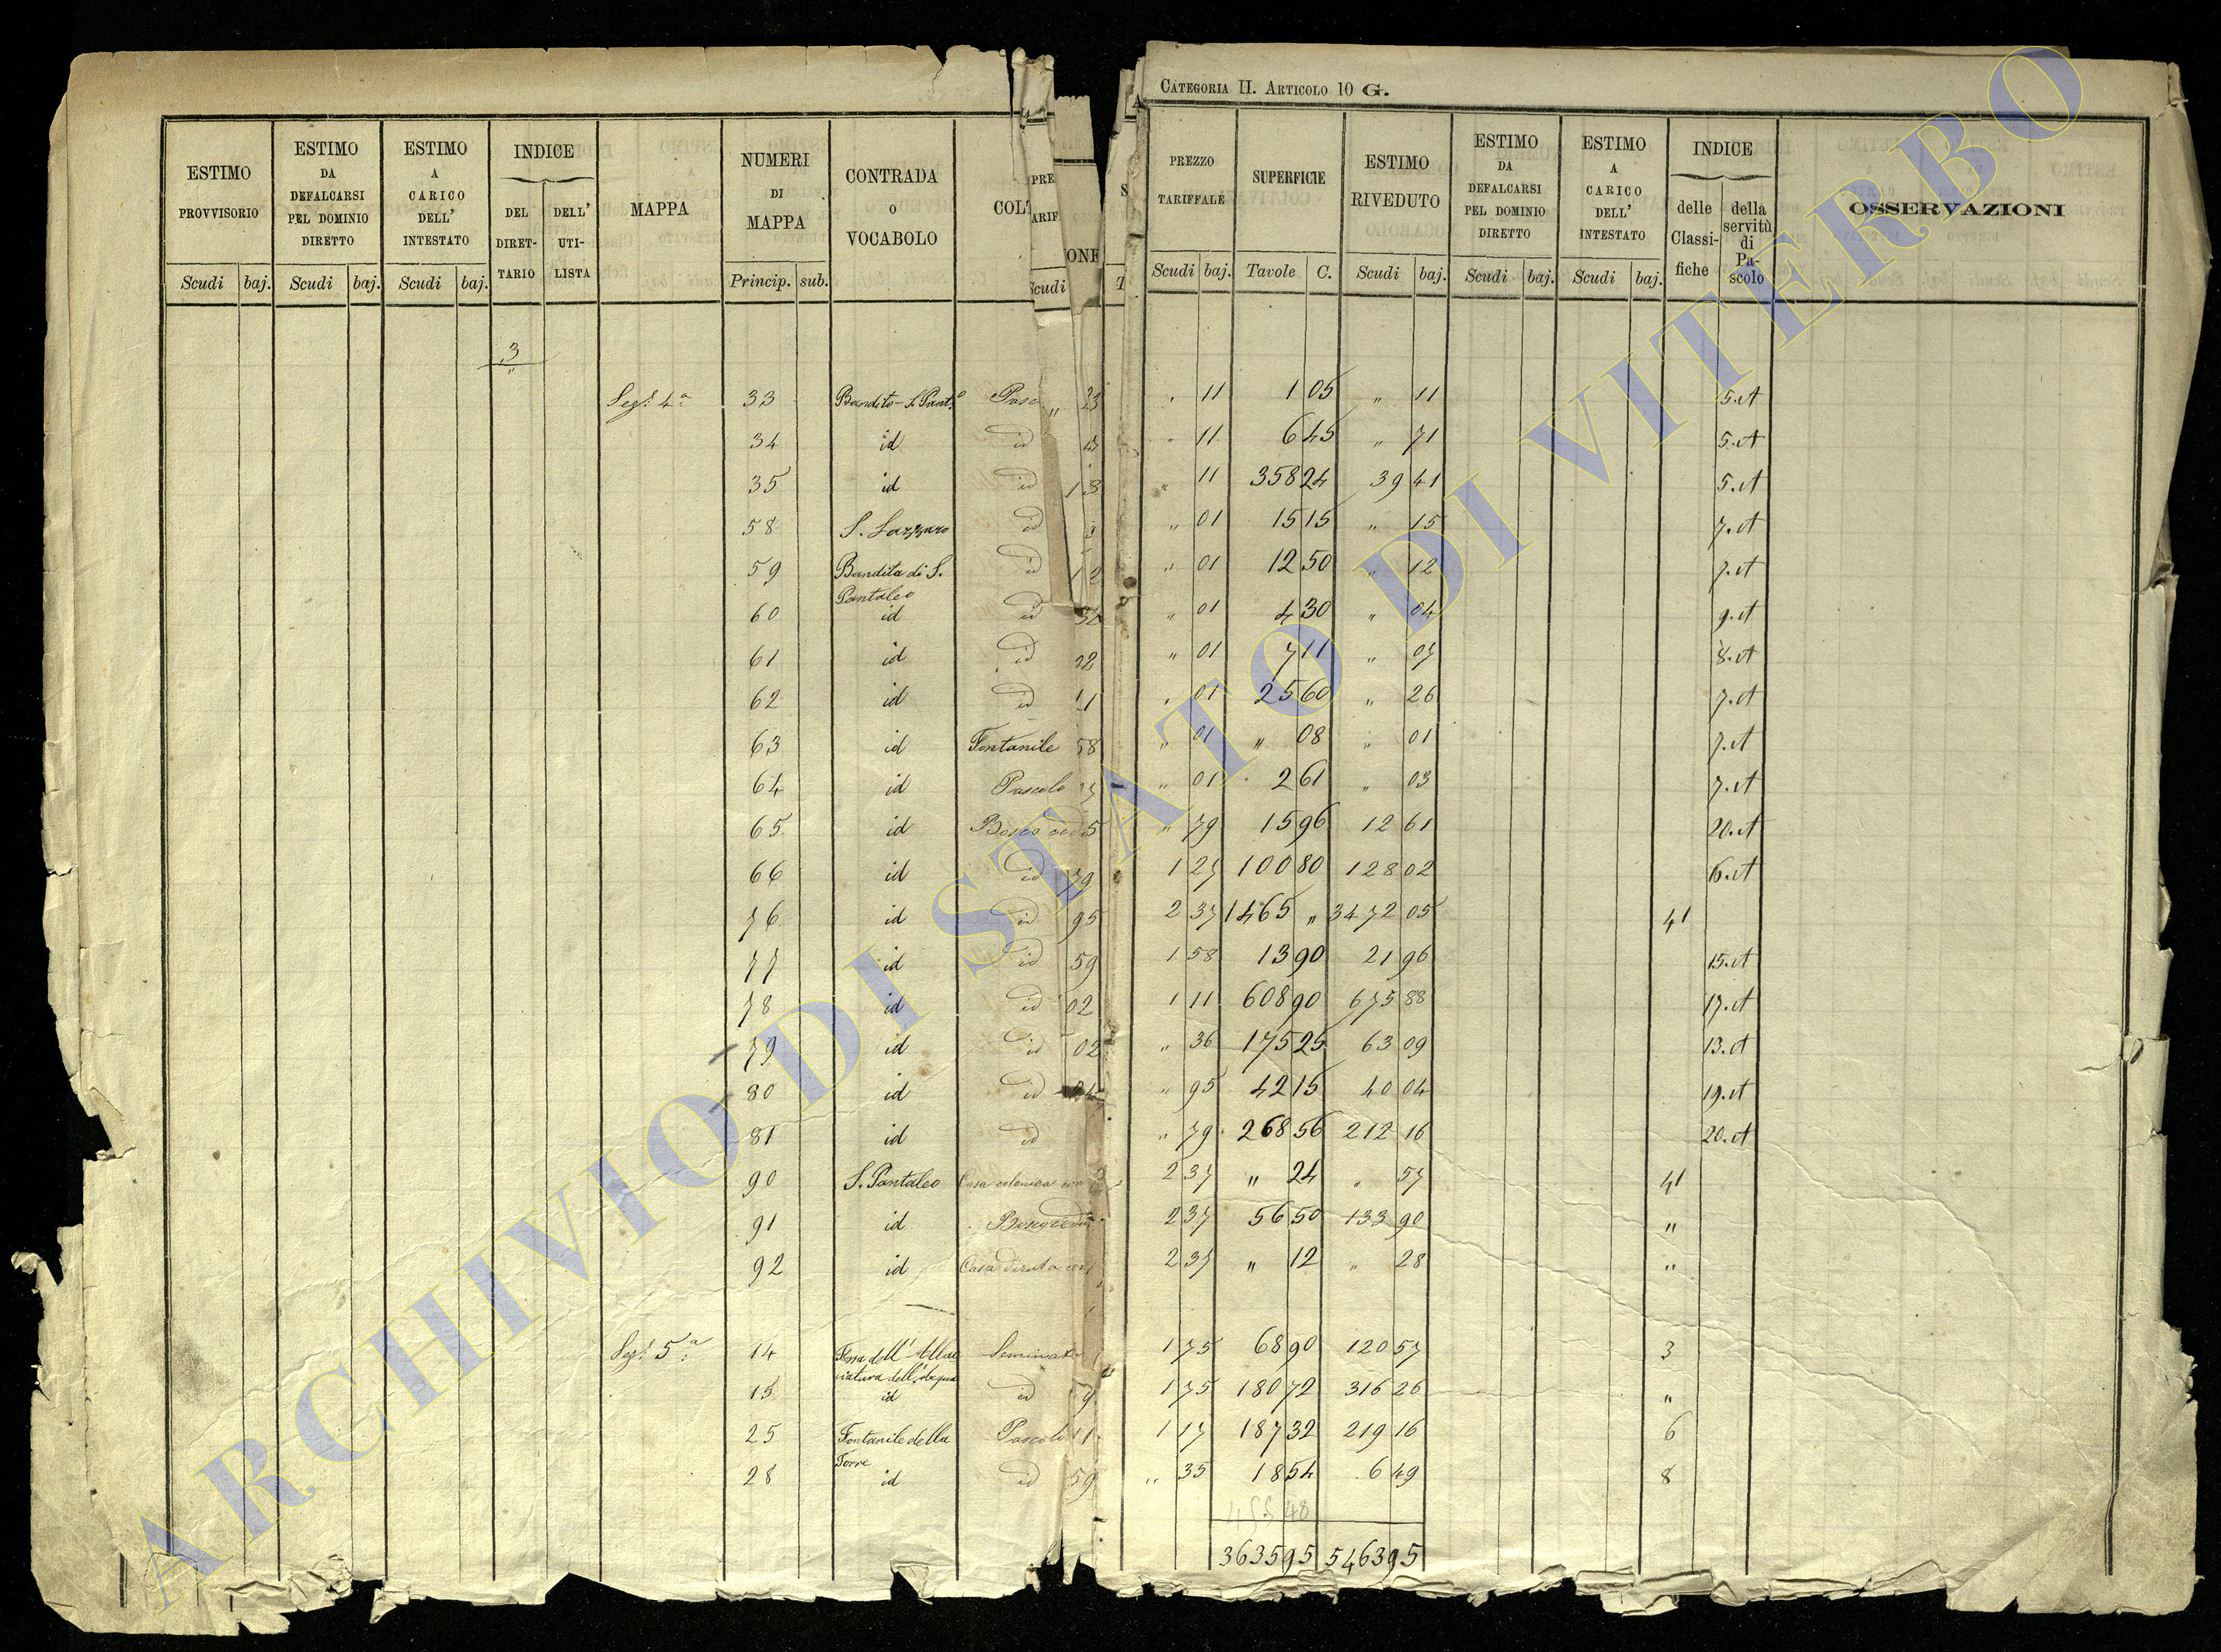 CATEGORIA II. ARTICOLO 10 G.
ESTIMO PROVVISORIO
ESTIMO DA DEFALCARSI PEL DOMINIO DIRETTO
ESTIMO A CARICO DELL' INTESTATO
INDICE
DEL DIRETTARIO
DELL' UTILISTA
MAPPA
NUMERI DI MAPPA
CONTRADA O VOCABOLO
COLT
PREZZO TARIFFALE
SUPERFICIE
ESTIMO RIVEDUTO
ESTIMO DA DEFALCARSI PEL DOMINIO DIRETTO
ESTIMO A CARICO DELL' INTESTATO
INDICE
delle Classifiche
della servitù di Pascolo
OSSERVAZIONI
Scudi baj. Scudi baj. Scudi baj. Princip. sub. Scudi baj. Tavole C. Scudi baj. Scudi baj. Scudi baj.
3
Sez: 4ª 33 Bandito - S. Pant.º Pasc „ 23 „ 11 1 05 „ 11 5.A
34 id id „ 11 6 45 „ 71 5.A
35 id id 18 „ 11 358 24 39 41 5.A
58 S. Lazzaro id „ 01 15 15 „ 15 7.A
59 Bandita di S. Pantaleo id 12 „ 01 12 50 „ 12 7.A
60 id id „ 01 4 30 „ 04 9.A
61 id id „ 01 7 11 „ 07 8.A
62 id id „ 01 25 60 „ 26 7.A
63 id Fontanile 58 „ 01 „ 08 „ 01 7.A
64 id Pascolo „ 01 2 61 „ 03 7.A
65 id Bosco ced „ 79 15 96 12 61 20.A
66 id id 79 1 27 100 80 128 02 16.A
76 id id 95 2 37 1465 „ 3472 05 41
77 id id 59 1 58 13 90 21 96 15.A
78 id id 02 1 11 608 90 675 88 17.A
79 id id 02 „ 36 175 25 63 09 13.A
80 id id „ 95 42 15 40 04 19.A
81 id id „ 79 268 56 212 16 20.A
90 S. Pantaleo Casa colonica con 2 37 „ 24 „ 57 41
91 id Bosco ced 2 37 56 50 133 90 „
92 id Casa diruta con 2 37 „ 12 „ 28 „
Sez: 5ª 14 Fossa dell' Allac ciatura dell' Acqua Seminat 1 75 68 90 120 57 3
15 id id 1 75 180 72 316 26 „
25 Fontanile della Torre Pascolo 1 17 187 32 219 16 6
28 id id 59 „ 35 18 54 6 49 8
3635 95 5463 95
ARCHIVIO DI STATO DI VITERBO